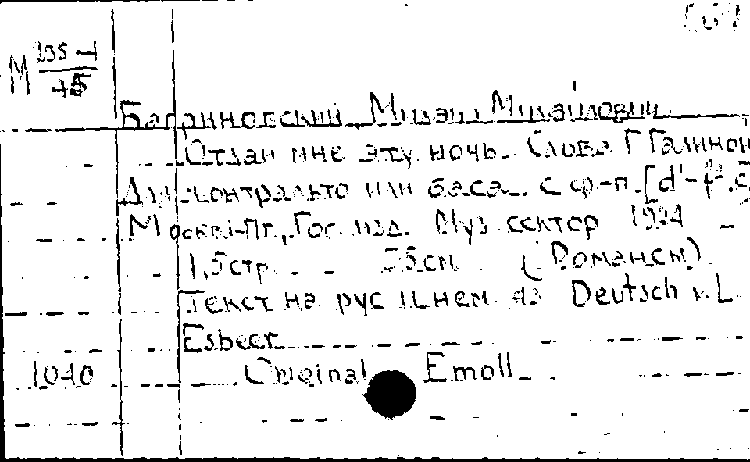 М 195-1
45
Багриновский Михаил Михайлович
Отдай мне эту ночь. Слова Г Галиной
Для контральто или баса с ф-п. [d'-f².
Москва-Пг., Гос. изд. Муз сектор 1924
1,5 стр. 35 см (Романсы)
Текст на рус и нем яз Deutsch v. L.
Esbeer
1040 Original Emoll